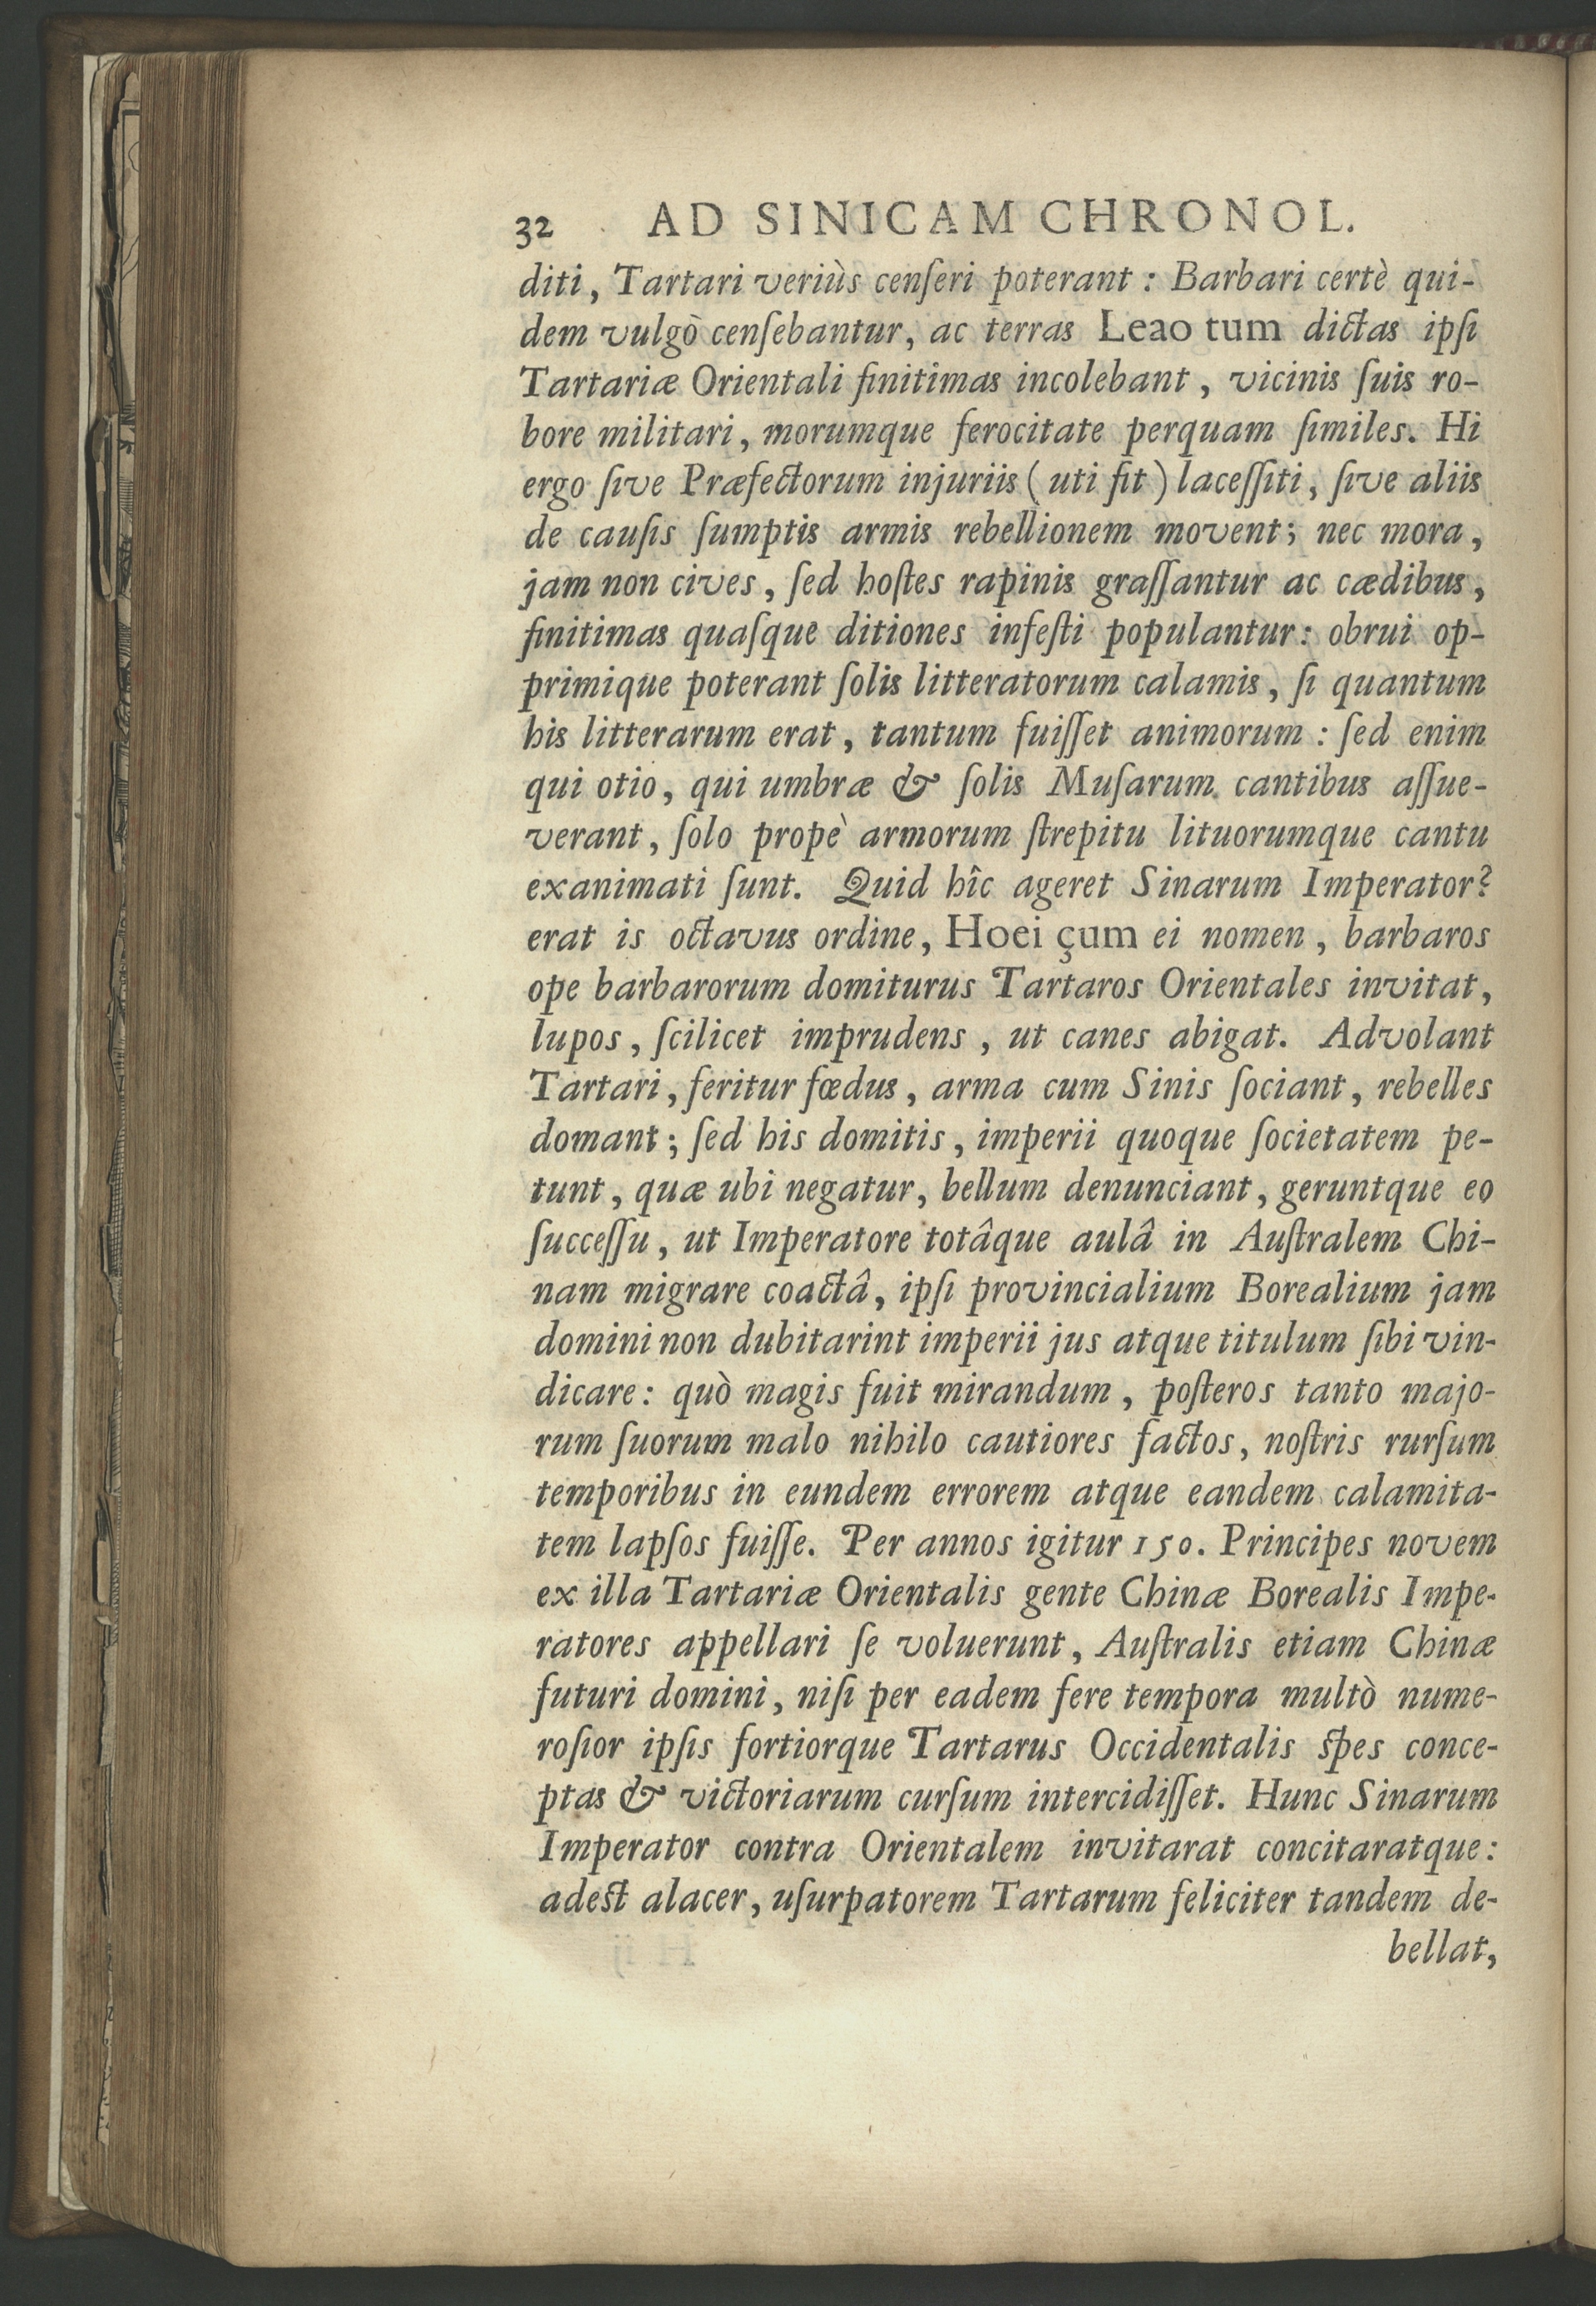 32 AD SINICAM CHRONOL.
diti, Tartari veriùs cenſeri poterant : Barbari certè qui-
dem vulgò cenſebantur, ac terras Leao tum dictas ipſi
Tartariæ Orientali finitimas incolebant, vicinis ſuis ro-
bore militari, morumque ferocitate perquam ſimiles. Hi
ergo ſive Præfectorum injuriis ( uti fit ) laceſſiti, ſive aliis
de cauſis ſumptis armis rebellionem movent; nec mora,
jam non cives, ſed hoſtes rapinis graſſantur ac cædibus,
finitimas quaſque ditiones infeſti populantur: obrui op-
primique poterant ſolis litteratorum calamis, ſi quantum
his litterarum erat, tantum fuiſſet animorum : ſed enim
qui otio, qui umbræ & ſolis Muſarum cantibus aſſue-
verant, ſolo propè armorum ſtrepitu lituorumque cantu
exanimati ſunt. Quid hîc ageret Sinarum Imperator?
erat is octavus ordine, Hoei çum ei nomen, barbaros
ope barbarorum domiturus Tartaros Orientales invitat,
lupos, ſcilicet imprudens, ut canes abigat. Advolant
Tartari, feritur fœdus, arma cum Sinis ſociant, rebelles
domant; ſed his domitis, imperii quoque ſocietatem pe-
tunt, quæ ubi negatur, bellum denunciant, geruntque eo
ſucceſſu, ut Imperatore totâque aulâ in Auſtralem Chi-
nam migrare coactâ, ipſi provincialium Borealium jam
domini non dubitarint imperii jus atque titulum ſibi vin-
dicare: quò magis fuit mirandum, poſteros tanto majo-
rum ſuorum malo nihilo cautiores factos, noſtris rurſum
temporibus in eundem errorem atque eandem calamita-
tem lapſos fuiſſe. Per annos igitur 150. Principes novem
ex illa Tartariæ Orientalis gente Chinæ Borealis Impe-
ratores appellari ſe voluerunt, Auſtralis etiam Chinæ
futuri domini, niſi per eadem fere tempora multò nume-
roſior ipſis fortiorque Tartarus Occidentalis ſpes conce-
ptas & victoriarum curſum intercidiſſet. Hunc Sinarum
Imperator contra Orientalem invitarat concitaratque:
adeſt alacer, uſurpatorem Tartarum feliciter tandem de-
bellat,